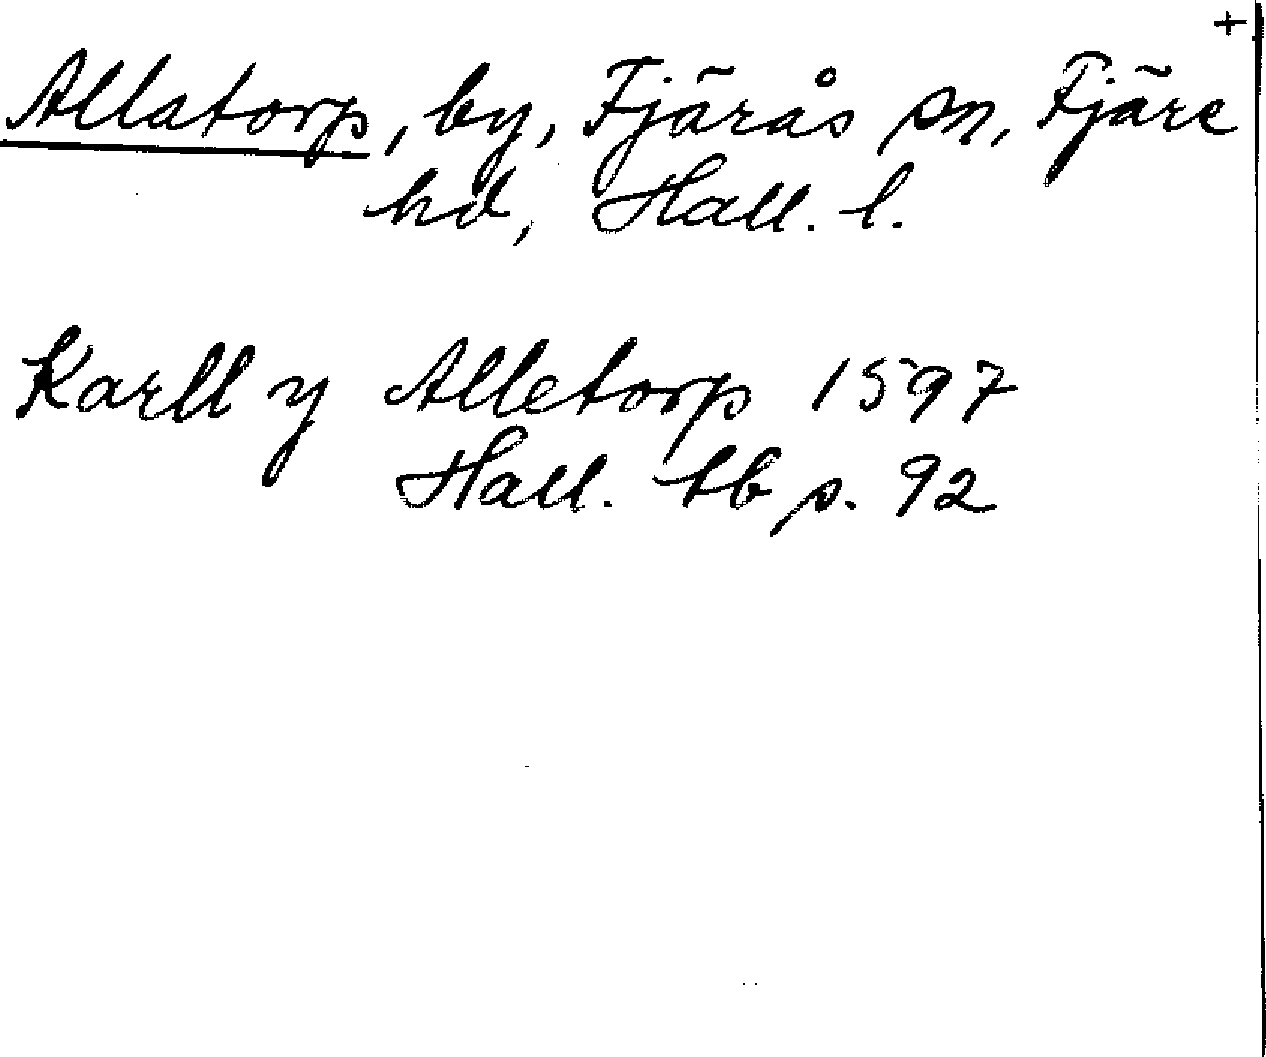 +
Allatorp, by, Fjärås sn, Fjäre
hd, Hall. l.
Karll y Alletorp 1597
Hall. tb s. 92